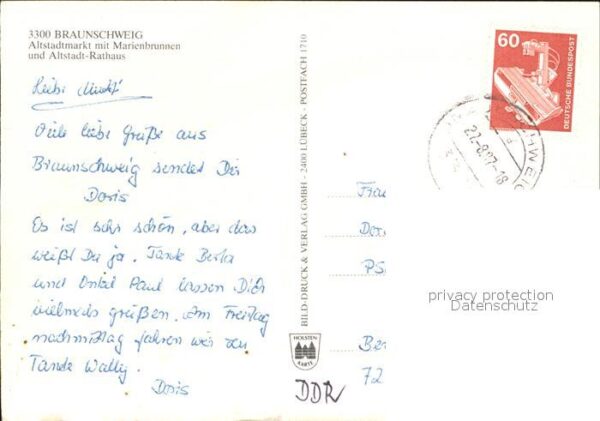 3300 BRAUNSCHWEIG
Altstadtmarkt mit Marienbrunnen
und Altstadt-Rathaus
Liebe
Viele liebe Grüße aus
Braunschweig sendet Dir
Doris
Es ist sehr schön, aber das
weißt Du ja. Tante Berta
und Onkel Paul lassen Dich
vielmals grüßen. Am Freitag
nachmittag fahren wir zu
Tante Wally.
Doris
BILD-DRUCK & VERLAG GMBH - 2400 LÜBECK - POSTFACH 1710
HOLSTEN
KARTE
DDR
60
DEUTSCHE BUNDESPOST
Frau
privacy protection
Datenschutz
72